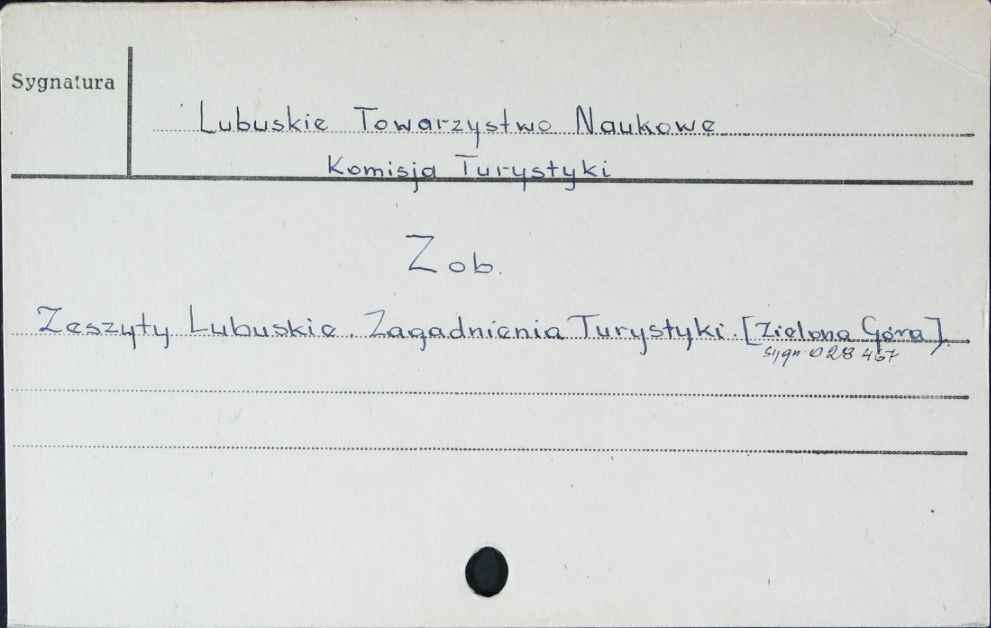 Sygnatura
Lubuskie Towarzystwo Naukowe
Komisja Turystyki
Zob.
Zeszyty Lubuskie. Zagadnienia Turystyki. [Zielona Góra].
sygn 028 467